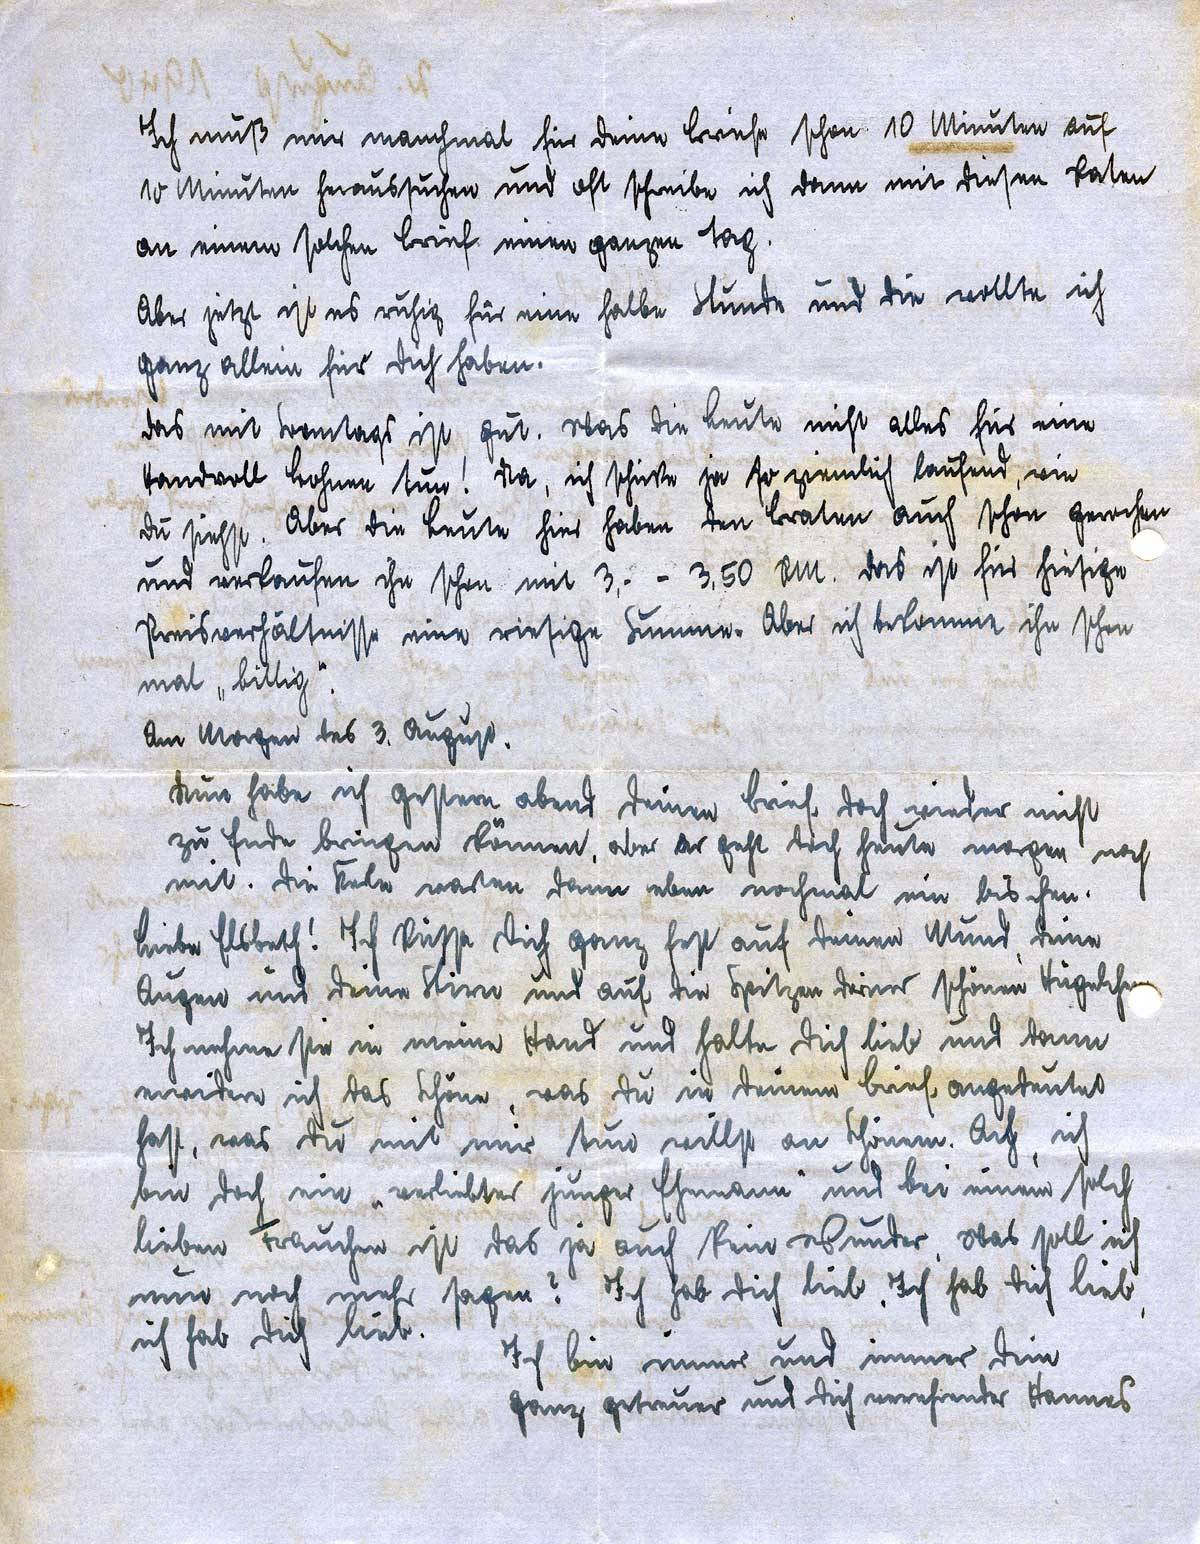 Ich muß mir manchmal für Deine Briefe schon 10 Minuten auf
10 Minuten heraussuchen und oft schreibe ich dann mit diesen Raten
an einem solchen Brief einen ganzen Tag.
Aber jetzt ist es ruhig für eine halbe Stunde und die wollte ich
ganz allein für Dich haben.
Das mit Sonntags ist gut. Was die Leute nicht alles für eine
Handvoll Bohnen tun! Na, ich schicke ja so ziemlich laufend, wie
Du siehst. Aber die Leute hier haben den Braten auch schon gerochen
und verkaufen ihn schon mit 3,- - 3,50 RM. Das ist für hiesige
Preisverhältnisse eine riesige Summe. Aber ich bekomme ihn schon
mal „billig“.
Am Morgen des 3. August.
Nun habe ich gestern abend Deinen Brief doch wieder nicht
zu Ende bringen können, aber er geht doch heute morgen noch
mit. Die warten dann eben nochmal ein bischen.
Liebe Elsbeth! Ich küsse Dich ganz fest auf Deinen Mund, Deine
Augen und Deine Stirn und auf die Spitzen Deiner schönen Hügelchen
Ich nehme sie in meine Hand und halte Dich lieb und dann
erwidere ich das Schöne, was Du in Deinem Brief angedeutet
hast, was Du mit mir tun willst an Schönem. Ach, ich
bin doch ein „verliebter junger Ehemann“ und bei einem solch
lieben Frauchen ist das ja auch kein Wunder. Was soll ich
nun noch mehr sagen? Ich hab Dich lieb, Ich hab Dich lieb,
ich hab Dich lieb.
Ich bin immer und immer Dein
ganz getreuer und Dich verehrender Hannes